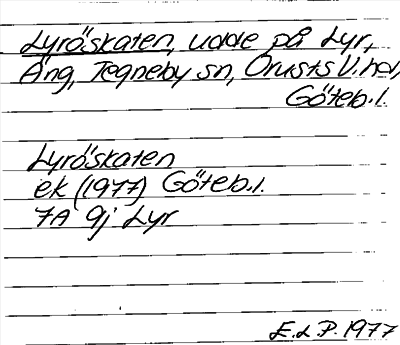 Lyröskaten, udde på Lyr,
Äng, Tegneby sn, Orusts V. hd,
Göteb.l.
Lyröskaten
ek (1977) Göteb.l.
7A 9j Lyr
E.L.P. 1977